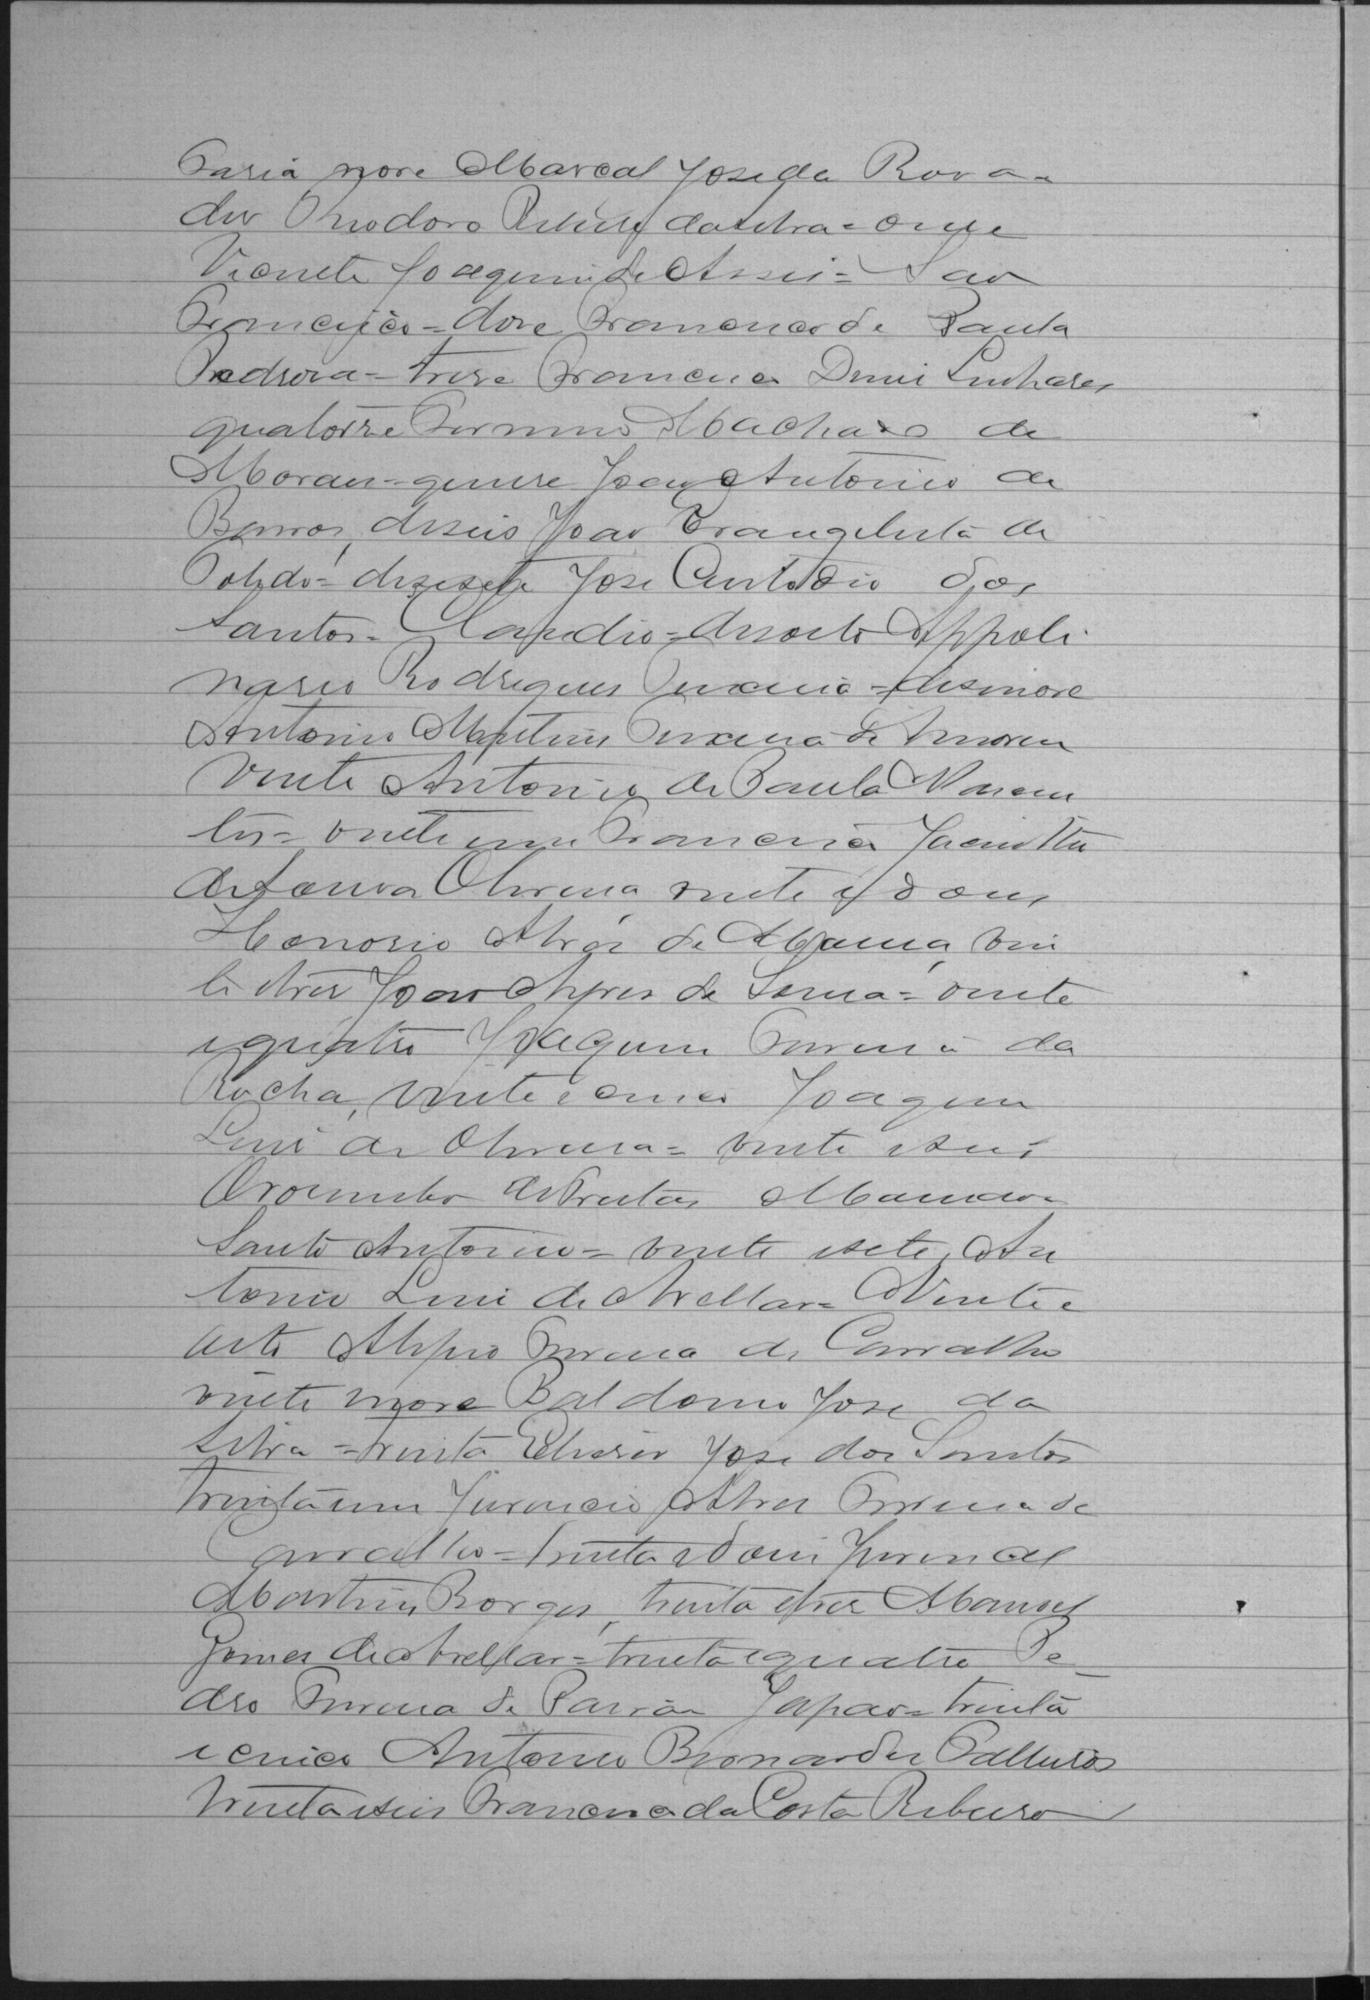 Faria nove Marcal José da Rosa =
des Theodoro Ribeiro da Silva = onse
Vicente Joaquim de Assis = Sao
Francisco = dose Francisco de Paula
Pedrosa = trese Francisco Diniz Linhares
quatorze Firmino Machado de
Moraes = quinse Joao Antonio de
Barros, deseis Joao Evangelista de
Toledo = desesete Jose Custodio dos
Santos = Claudio = desoito Appoli
nario Rodrigues Pereira = desenove
Antonio Martins Pereira de Amorim
Vinte Antonio de Paula Nascen
tes = vinte e um Francisco Jacintho
de Souza Oliveira vinte e dous
Honorio Alves de Moura, vin
te e tres Joao Alves de Souza = vinte
e quatro Joaquim Ferreira da
Rocha, vinte e cinco Joaquim
Luis de Oliveira = vinte e seis
Orosimbo de Freitas
Santo Antonio = vinte e sete, An
tonio Luis de Avellar = Vinte e
oito Alipio Ferreira de Carvalho
vinte nove Baldoino Jose da
Silva = trinta Elisero Jose dos Santos
trinta e um Juvencio Alves Ferreira de
Carvalho = trinta e dous Juvencal
Martins Borges, trinta e tres Manoel
Gomes de Avellar = trinta e quatro Pe
dro Ferreira de Paiva Japao = trinta
e cinco Antonio Bernardes
trinta e seis Francisco da Costa Ribeiro